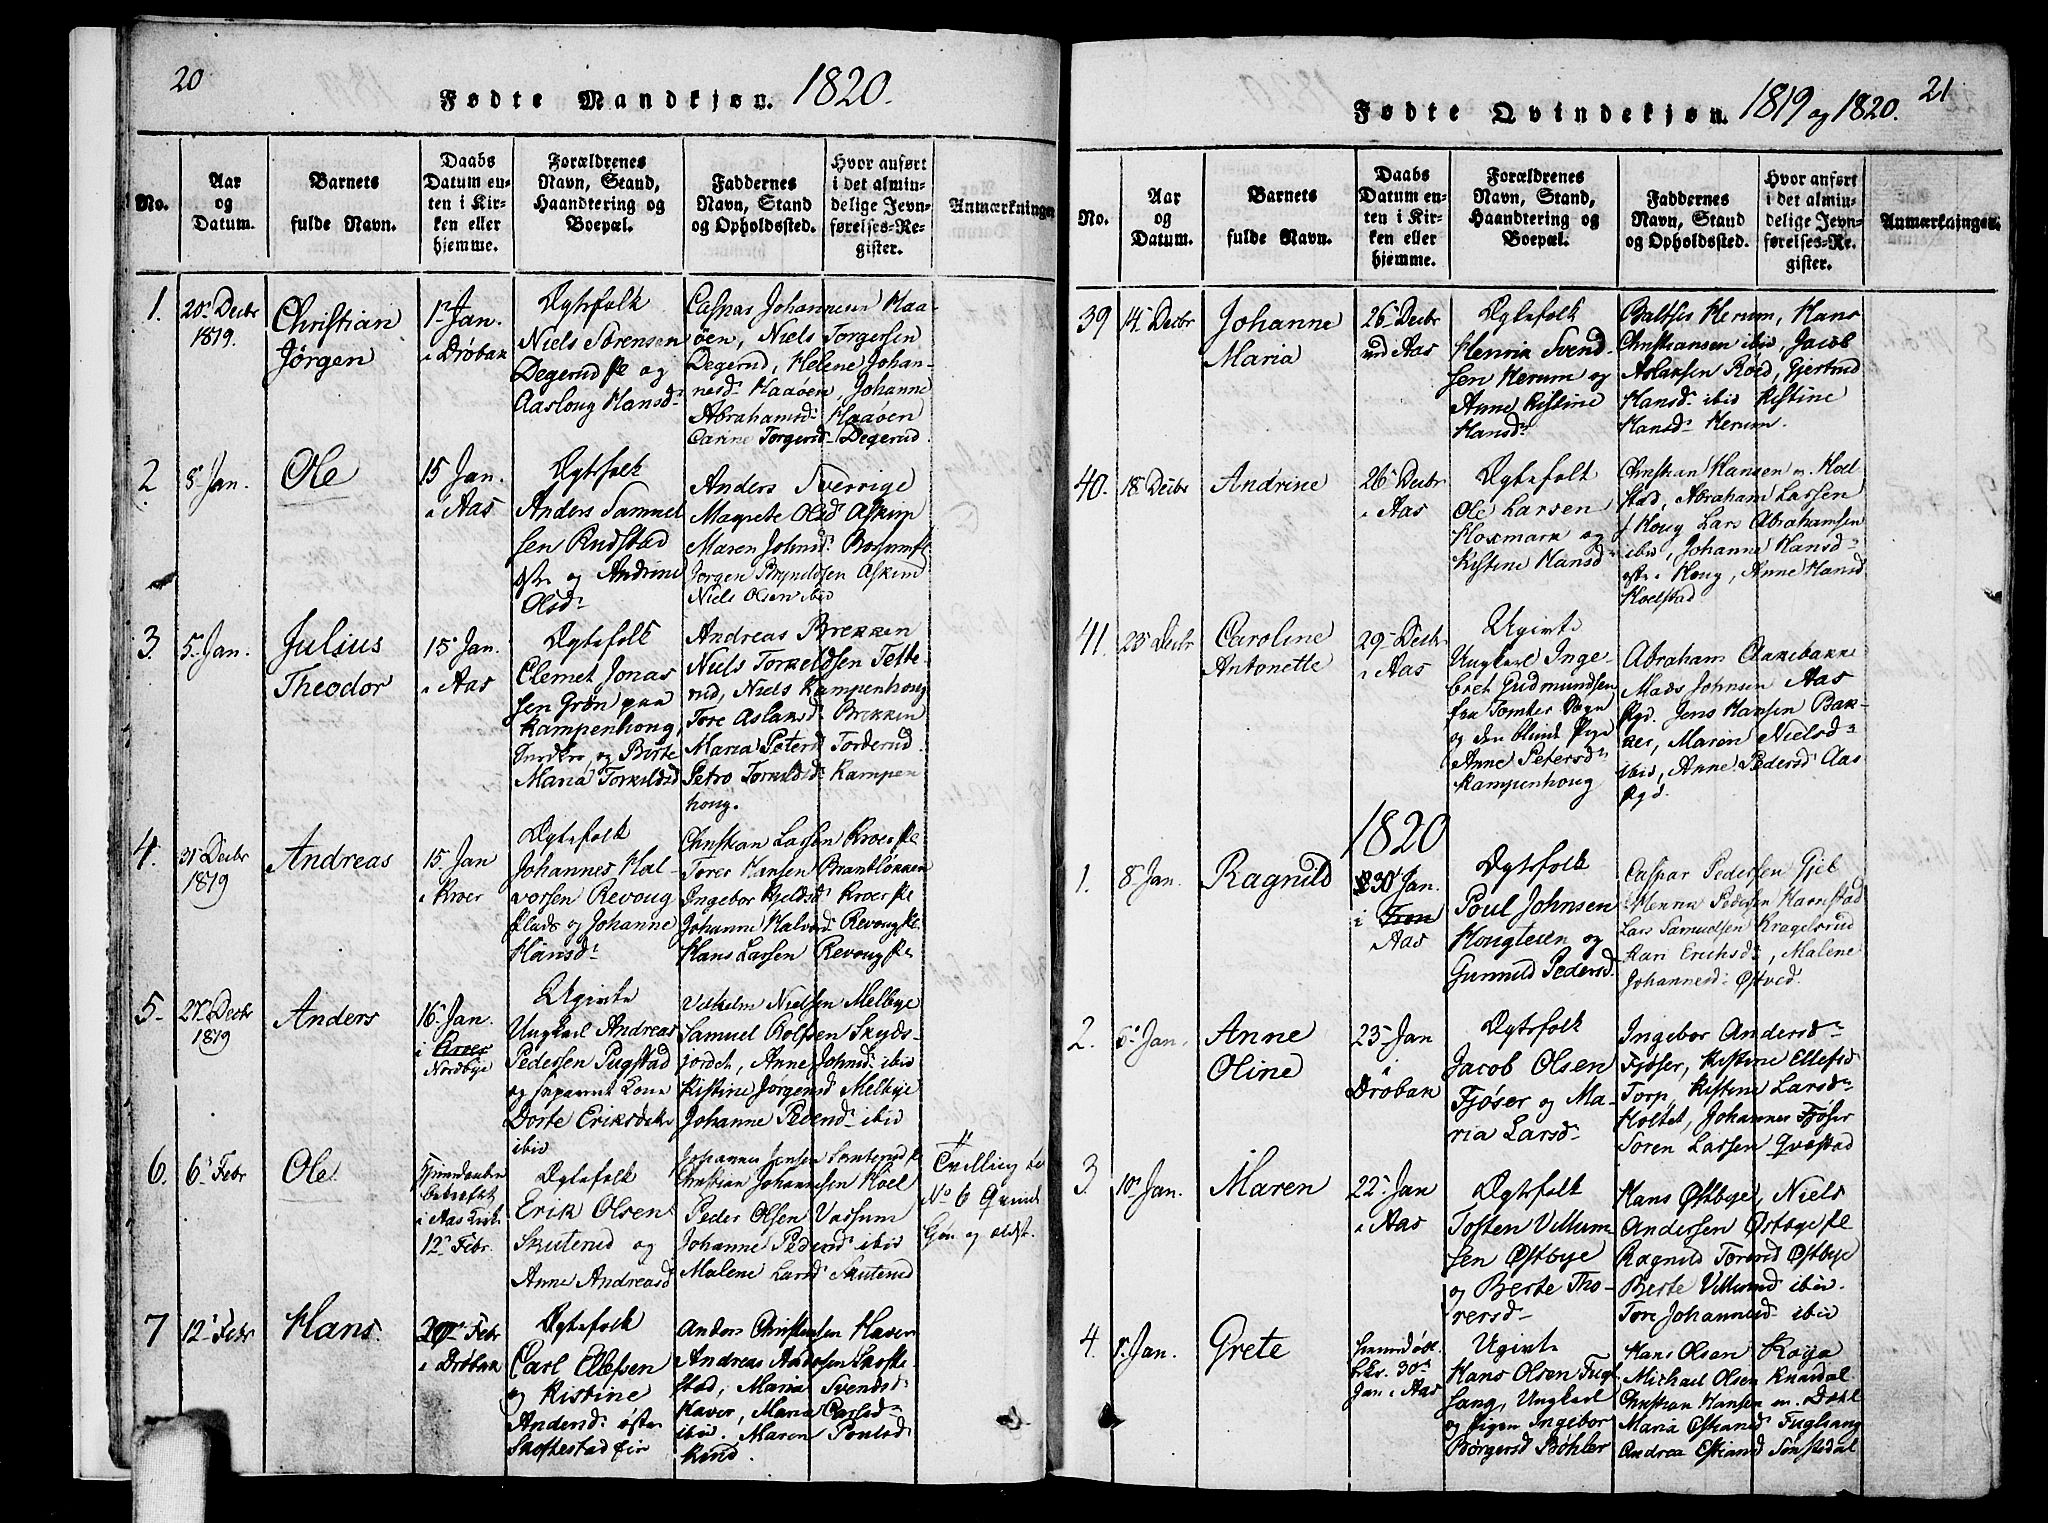 20
Fødte Mandkjøn. 1820.
No.
Aar
og
Datum.
Barnets
fulde Navn.
Daabs
Datum en-
ten i Kir-
ken eller
hjemme.
Forældrenes
Navn, Stand,
Haandtering og
Boepæl.
Faddernes
Navn, Stand
og Opholdssted.
Hvor anført
i det almin-
delige Jevn-
førelses-Re-
gister.
Anmærkninger
1.
20de Decbr
1819.
Christian
Jörgen
1r Jan.
i Dröbak
Ægtefolk
Niels Sörensen
Degerud Pl og
Aasloug Hansd.
Caspar Johannesen Haa-
öen, Niels Torgersen
Degerud, Helene Johan-
nesd. Haaöen, Johanne
Abrahamsd. Haaöen
Carine Torgersd. Degerud.
2.
8 Jan.
Ole
15 Jan.
i Aas
Ægtefolk
Anders Sammel
sen Rudstad
og Andrine
Olsd.
Anders Sverrige
Magrete Olsd Askim
Maren Johnsd.
Jorgen Bryneldsen Askim
Niels Olsen ibid
3.
5 Jan.
Julius
Theodor
15 Jan.
i Aas
Ægtefolk
Clemet Jonas
sen Grön paa
Kampenhoug,
og Birte
Maria Torkeldsd
Andreas Brekken
Niels Torkeldsen Tette-
rud, Niels Kampenhoug
Tore Aslaksd. Brekken
Maria Petersd Torderud
Petro Torkeldsd. Kampen
houg.
4.
31 Decbr
1819
Andreas
15 Jan
i Kroer
Ægtefolk
Johannes Hal-
vorsen Revoug
og Johanne
Hansd.
Christian Larsen Kroer Pl
Torer Hansen Brantlökken
Ingebor Kjeldsd Kroer Pl
Johanne Halvorsd. Revoug Pl
Hans Larsen Revoug Pl
5.
27 Decbr
1819
Anders
16 Jan.
i Kroer
Nordbye
Ugivte
Ungkarl Andreas
Pedersen Pugstad
og separeret Kone
Dorte Eriksdatter
ibid
Vilhelm Nielsen Melbye
Samuel Rolfsen Skyds-
jordet, Anne Johnsd. ibid
Kistine Jörgensd Melbye
Johanne Pedersd. ibid
6.
6 Febr
Ole
Hjemmedaaben
bekræftet
i Aas Kirke
12 Febr.
Ægtefolk
Erik Olsen
Skuterud og
Anne Andreasd
Johannes Jensen
Christian Johannesen Hoel
Peder Olsen Vassum
Johanne Pedersd ibid
Malene Larsd Skuterud
Tvilling til
No 6 Qvinde
Kjön og ældst.
7
12 Febr
Hans
20 Febr
i Dröbak
Ægtefolk
Carl Ellefsen
og Kistine
Andersd. öster
Skoftestad
Anders Christensen Haver
Andreas Andersen Skofte-
stad, Maria Svendsd
Haver, Maria Carlsd
ibid. Maren Poulsd
Kind.
21
Fødte Qvindekjøn. 1819 og 1820.
No.
Aar
og
Datum.
Barnets
fulde Navn.
Daabs
Datum en-
ten i Kir-
ken eller
hjemme.
Forældrenes
Navn, Stand,
Haandtering og
Boepæl.
Faddernes
Navn, Stand
og Opholdssted.
Hvor anført
i det almin-
delige Jevn-
førelses-Re-
gister.
Anmærkninger.
39
14 Decbr
Johanne
Maria
26 Decbr
ved Aas
Ægtefolk
Henrik Svend-
sen Herum og
Anne Kistine
Hansd.
Baltser Herum, Hans
Christiansen ibid, Jacob
Aslaksen Röed, Gjertrud
Hansd. ibid Kistine
Hansd. Herum.
40.
18 Decbr
Andrine
26 Decbr
i Aas
Ægtefolk
Ole Larsen
Hoxmark og
Kistine Hansd
Christian Hansen
stad, Abraham Larsen
Houg Lars Abrahamsen
ibid, Johanne Hansd.
Houg, Anne Hansd
Hoelstad
41.
23 Decbr
Caroline
Antonette
29 Decbr
i Aas
Ugivte
Ungkarl Inge-
bret Gudmundsen
fra Tomter Sogn
og den blinde Pige
Anne Petersd.
Kampenhoug
Abraham Aakebakke
Mads Johnsen Aas
Pgd. Jens Hansen Bak-
ker, Maren Nielsd.
ibid, Anne Pedersd Aas
Pgd.
1820
1.
8 Jan.
Ragnild
30 Jan.
i Kroer
i Aas
Ægtefolk
Poul Johnsen
Hougteen og
Gunnild Pedersd.
Caspar Pedersen Gjeb
Henrik Pedersen Harestad
Lars Samuelsen Kragelsrud
Kari Erichsd., Malene
Johannesd. Östved.
2.
5 Jan.
Anne
Oline
23 Jan
i
Dröbak
Ægtefolk
Jacob Olsen
Fjöser og Ma-
ria Larsd.
Ingebor Andersd.
Fjöser, Kistine Ellefsd
Torp, Kistine Larsd.
Holtet, Johannes Fjöser
Soren Larsen Qvæstad
3.
10 Jan.
Maren
22 Jan
i Aas
Ægtefolk
Tosten Villum-
sen Östbye
og Berte Tho-
rersd.
Hans Östbye, Niels
Andersen Östbye Pl
Ragnild Torersd Östbye
Berte Villumsd ibid.
Tore Johannesd. ibid
4.
8 Jan.
Grete
30
Jan i Aas
Ugivte
Hans Olsen Fugl-
sang, Ungkarl
og Pigen Ingebor
Börgersd Böhler
Hans Olsen Kaya
Michael Olsen Knardal
Christian Hansen m. Dahl
Maria Östrand Fuglsang
Andrea Estrand Sönstedal